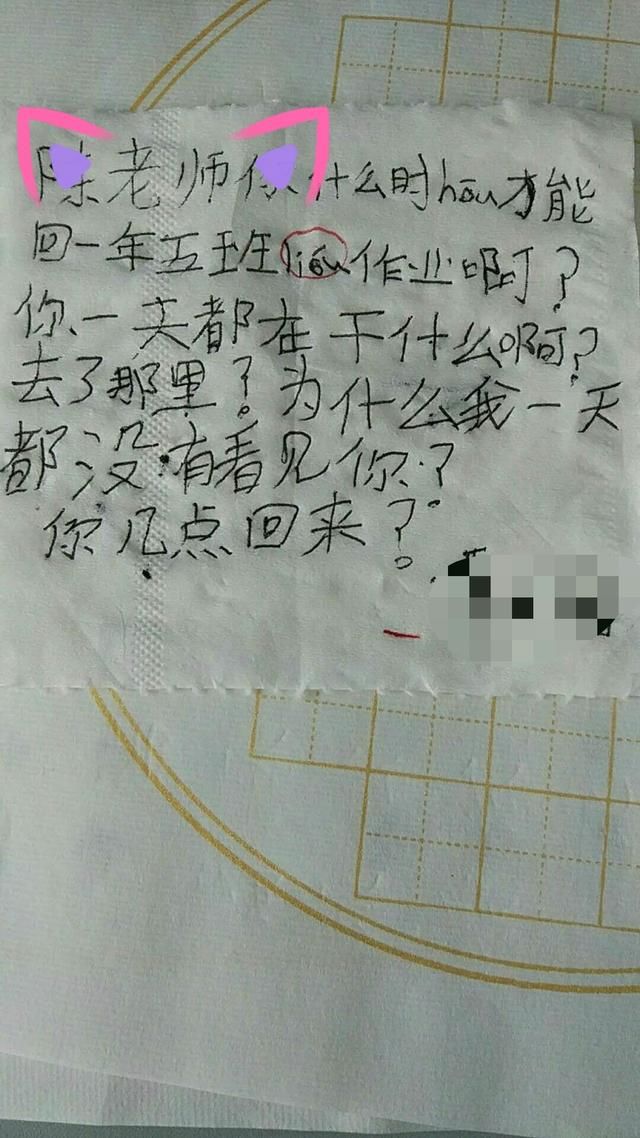 陈老师你什么时hōu才能
回一年五班liōu作业啊？
你一天都在干什么啊？
去了那里？为什么我一天
都没有看见你？
你几点回来？